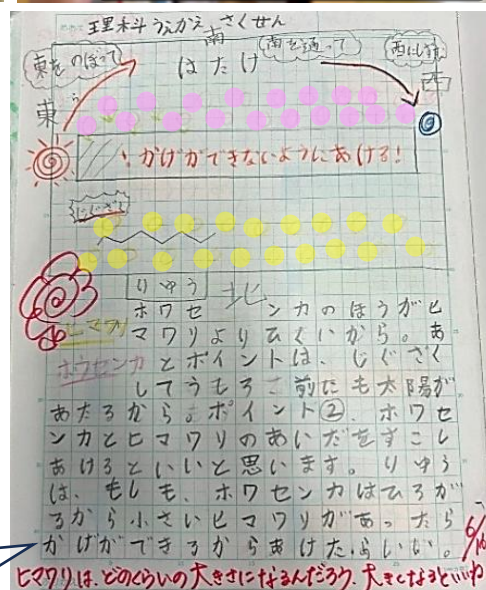 理科 うえかえ さくせん
南
東を のぼって
はたけ
南を通って
西にしずむ
東
西
かげができないようにあける!
じぐざく
りゆう
北
ヒマワリ
ホウセンカ
ホワセンカのほうがヒ
マワリよりひくいから。あ
とポイントは、じぐざく
してうもろこ前にも太陽が
あたるから。ポイント②、ホワセ
ンカとヒマワリのあいだをすこし
あけるといいと思います。りゆう
は、もしも、ホワセンカはひろが
るから小さいヒマワリがあったら
かげができるからあけたらいい。
6/16
ヒマワリは、どのくらいの大きさになるんだろう、大きくなるといいね